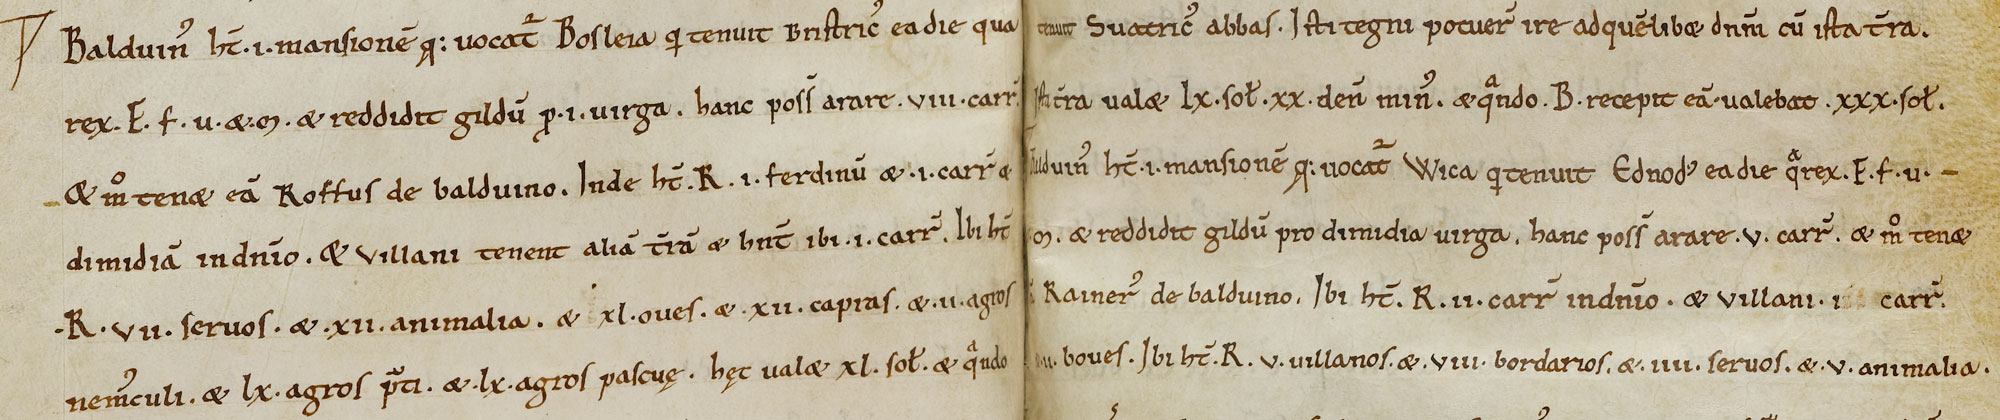 Balduin᾽ ht̄ .i. mansionē q̄: uocat᷑ Bosleia q̇ tenuit Bristric᾽ ea die qua
rex .E. f. u. & .m. & reddidit gildū ꝓ .i. uirga. hanc poss̄ arare .viii. carr̄
& m̊ ten& eā Roffus de balduino. Inde ht̄ .R. i. ferdinū & .i. carr̄ &
dimidiā in dn̄io. & villani tenent aliā tr̄ā & hn̄t ibi .i. carr̄. Ibi ht̄
.R. vii. seruos. & .xii. animalia. & xl. oues. & .xii. capras. & .ii. agros
nem᾽culi. & lx. agros p̃ti. & .lx. agros pascuę. hęc ual& xl. sol̄. & q̃ndo
tenuit Suatric᾽ abbas. Isti tegni potuer̄ ire ad quēlib& dn̄m cū ista tr̄a.
Ista tr̄a ual& lx. sol̄. xx. den̄ min᾽. & q̃ndo .B. recepit eā. ualebat .xxx. sol̄.
Balduin᾽ ht̄ .i. mansionē q̄: uocat᷑ Wica q̇ tenuit Ednod᾽ ea die q̃ rex .E. f. u.
.m. & reddidit gildū pro dimidia uirga. hanc poss̄ arare .v. carr̄. & m̊ ten&
Rainer᾽ de balduino. Ibi ht̄ .R. ii. carr̄ in dn̄io. & villani . carr̄.
boues. Ibi ht̄ .R. v. uillanos. & .viii. bordarios. & .iiii. seruos. & .v. animalia.